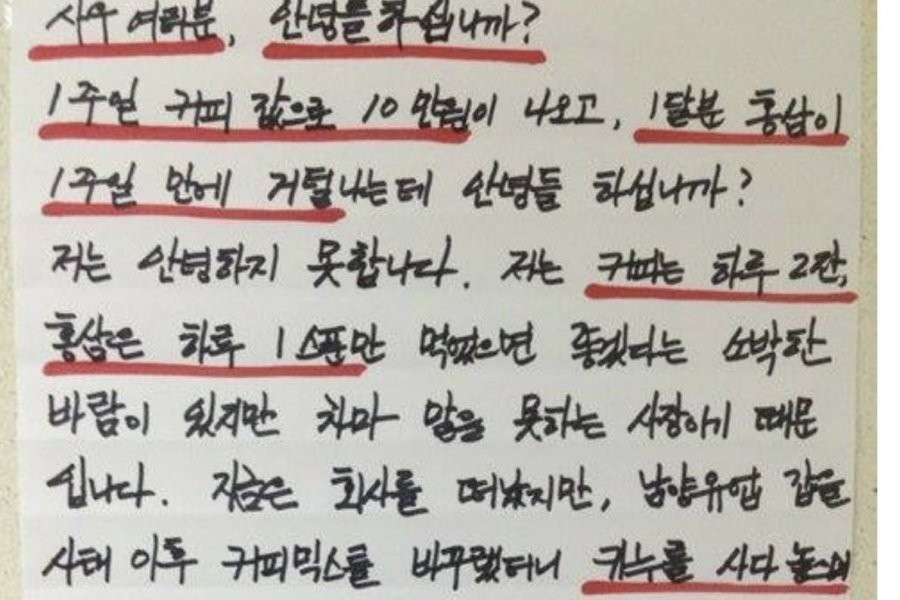 사우 여러분, 안녕들하십니까?
1주일 커피 값으로 10만원이 나오고, 1달분 홍삼이
1주일 안에 거덜나는데 안녕들 하십니까?
저는 안녕하지 못합니다. 저는 커피는 하루 2잔,
홍삼은 하루 1스푼만 먹었으면 좋겠다는 소박한
바람이 있지만 차마 말을 못하는 사장이기 때문
입니다. 지금은 회사를 떠났지만, 남양유업 갑을
사태 이후 커피믹스를 바꾸랬더니 카누를 사다